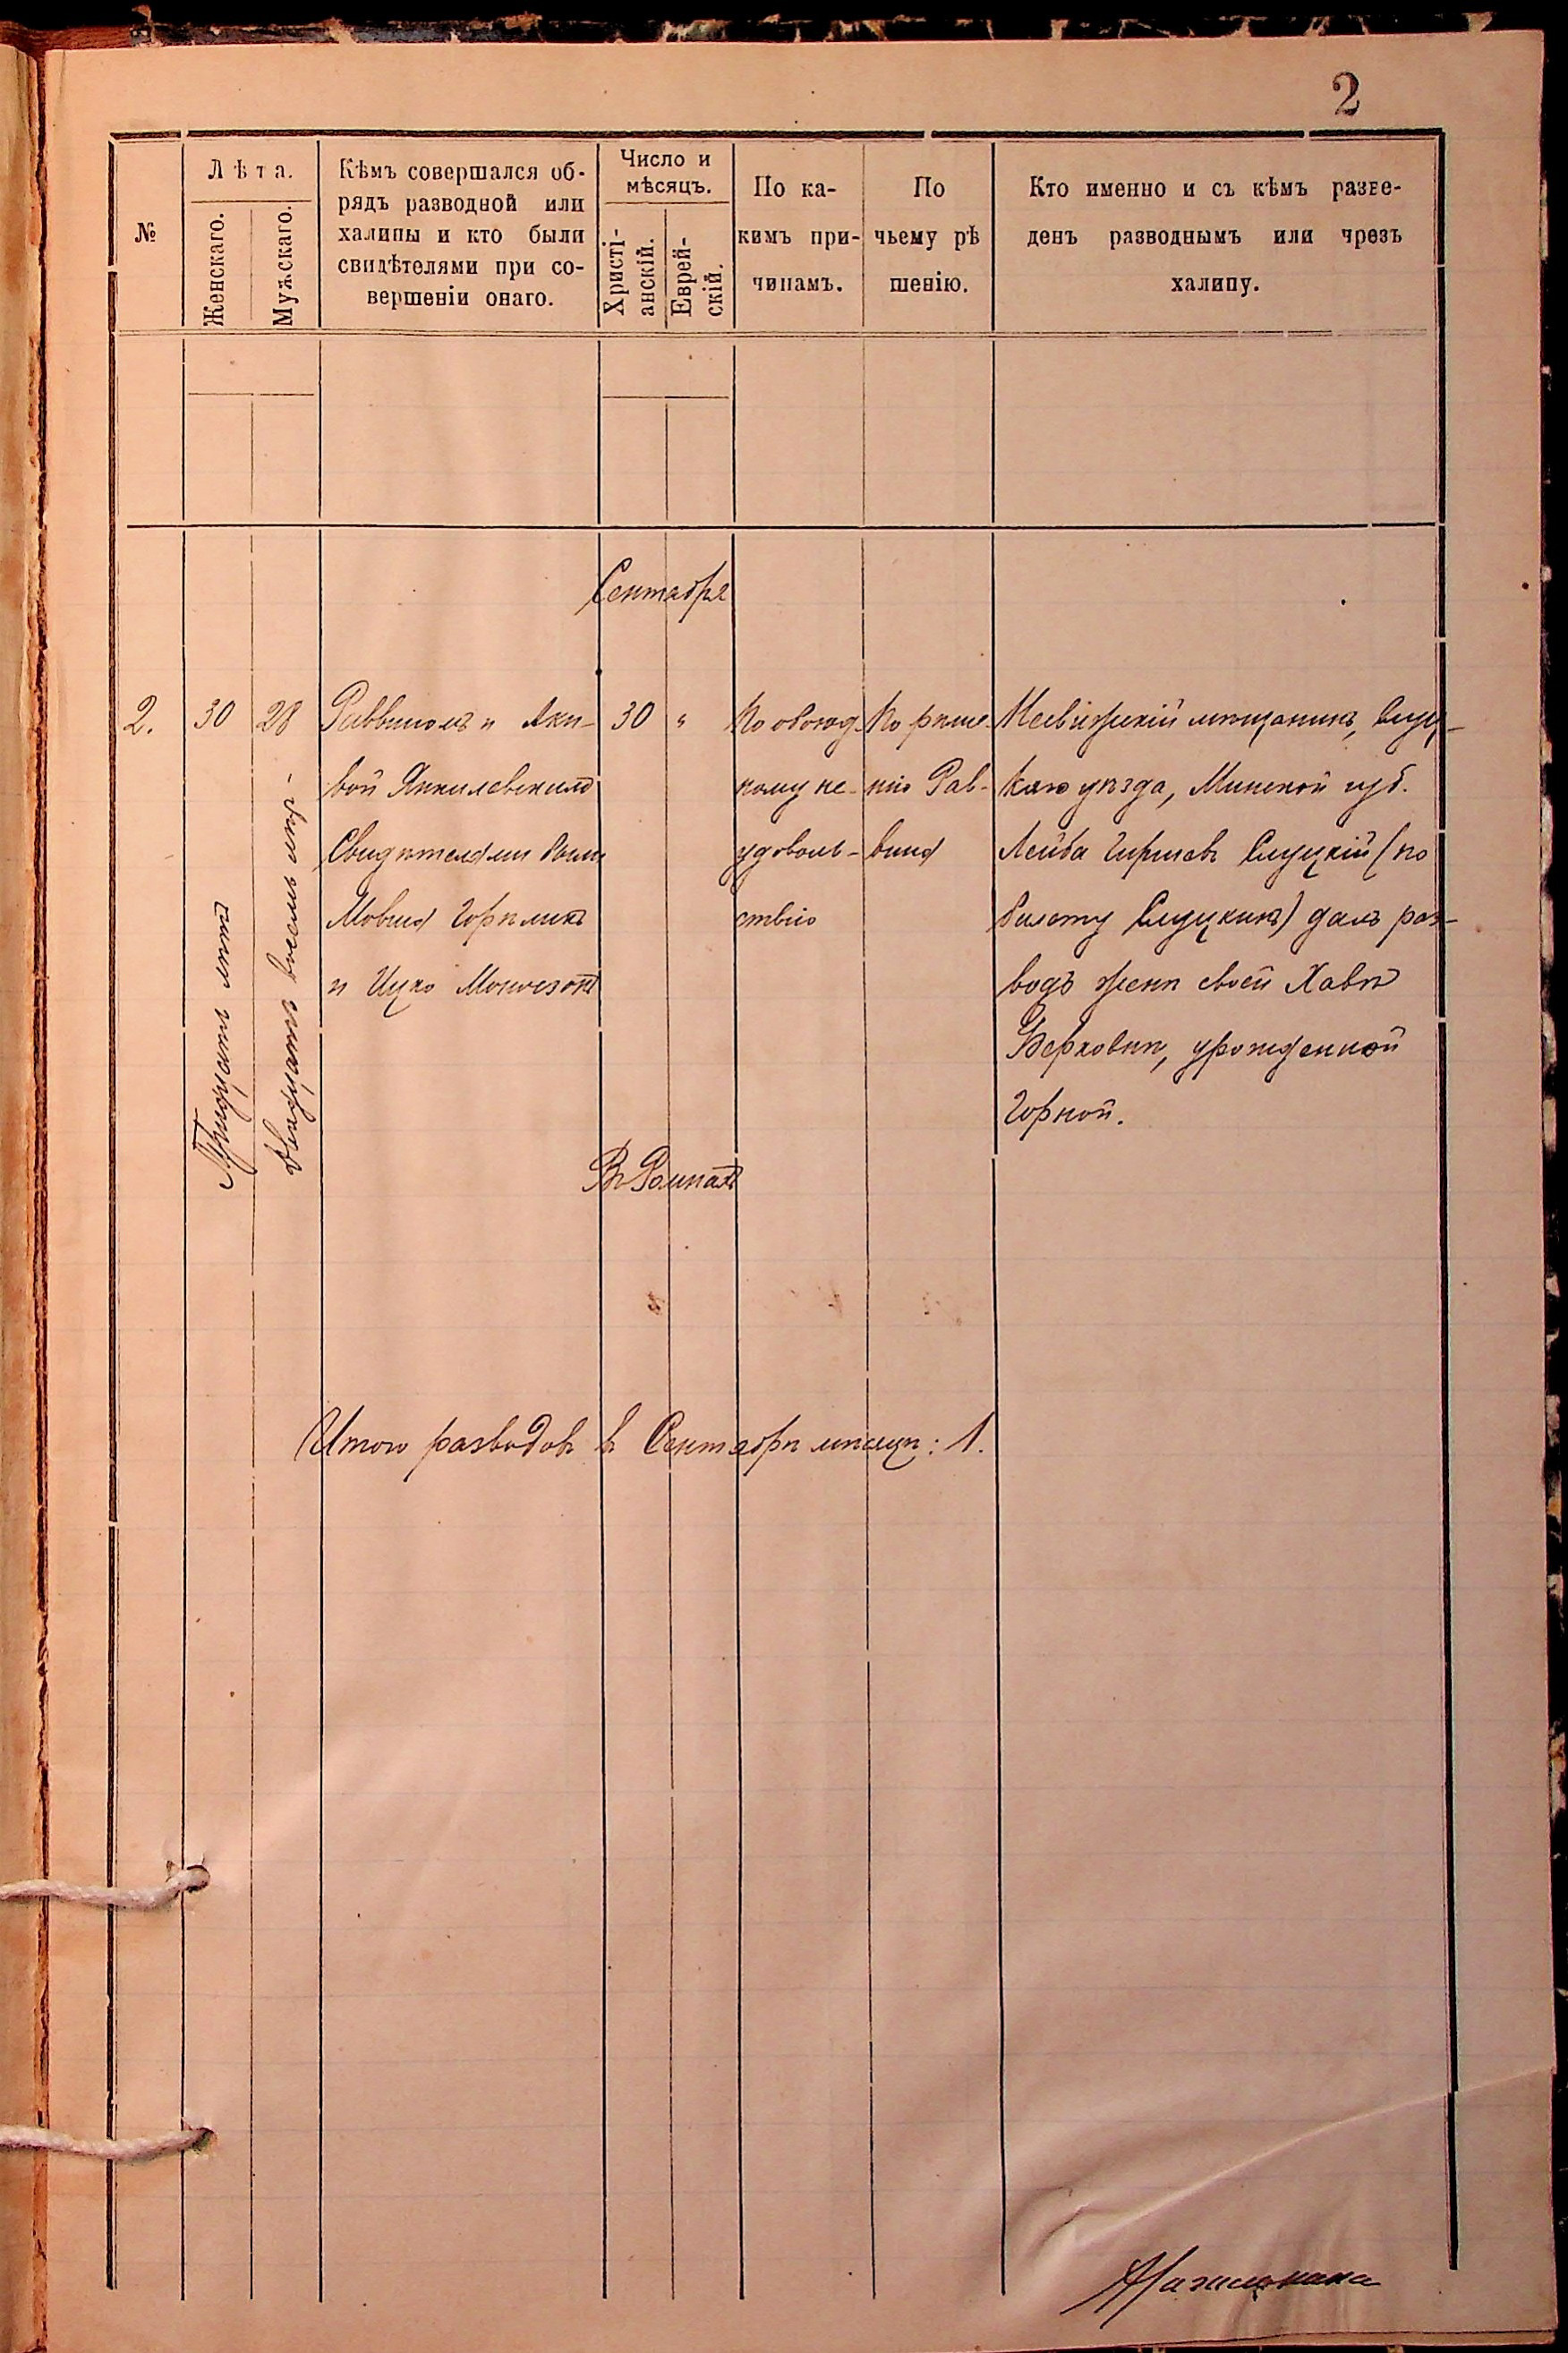 2
№
Лѣта.
Женскаго.
Мужскаго.
Кѣмъ совершался об-
рядъ разводной или
халипы и кто были
свидѣтелями при со-
вершеніи онаго.
Число и
мѣсяцъ.
Христі-
анскій.
Еврей-
скій.
По ка-
кимъ при-
чинамъ.
По
чьему рѣ
шенію.
Кто именно и съ кѣмъ разве-
денъ разводнымъ или чрезъ
халипу.
Сентября
2.
30
Тридцать лѣтъ
28
двадцать восемь лѣт-
Раввиномъ Аки-
вой Янкилевичемъ
Свидѣтелями были
Мовша Горѣликъ
и Ицко
30 "
По обоюд-
ному не-
удоволь-
ствію
По рѣше-
нію Рав-
вина
Несвижскій мѣщанинъ, Слуц-
каго уѣзда, Минской губ.
Лейба Гиршевъ Слуцкій (по
билету Слуцкинъ) далъ раз-
водъ женѣ своей Хавѣ
Берковнѣ, урожденной
Горной.
Въ Ромнахъ
Итого разводовъ въ Сентябрѣ мѣсяцѣ: 1.